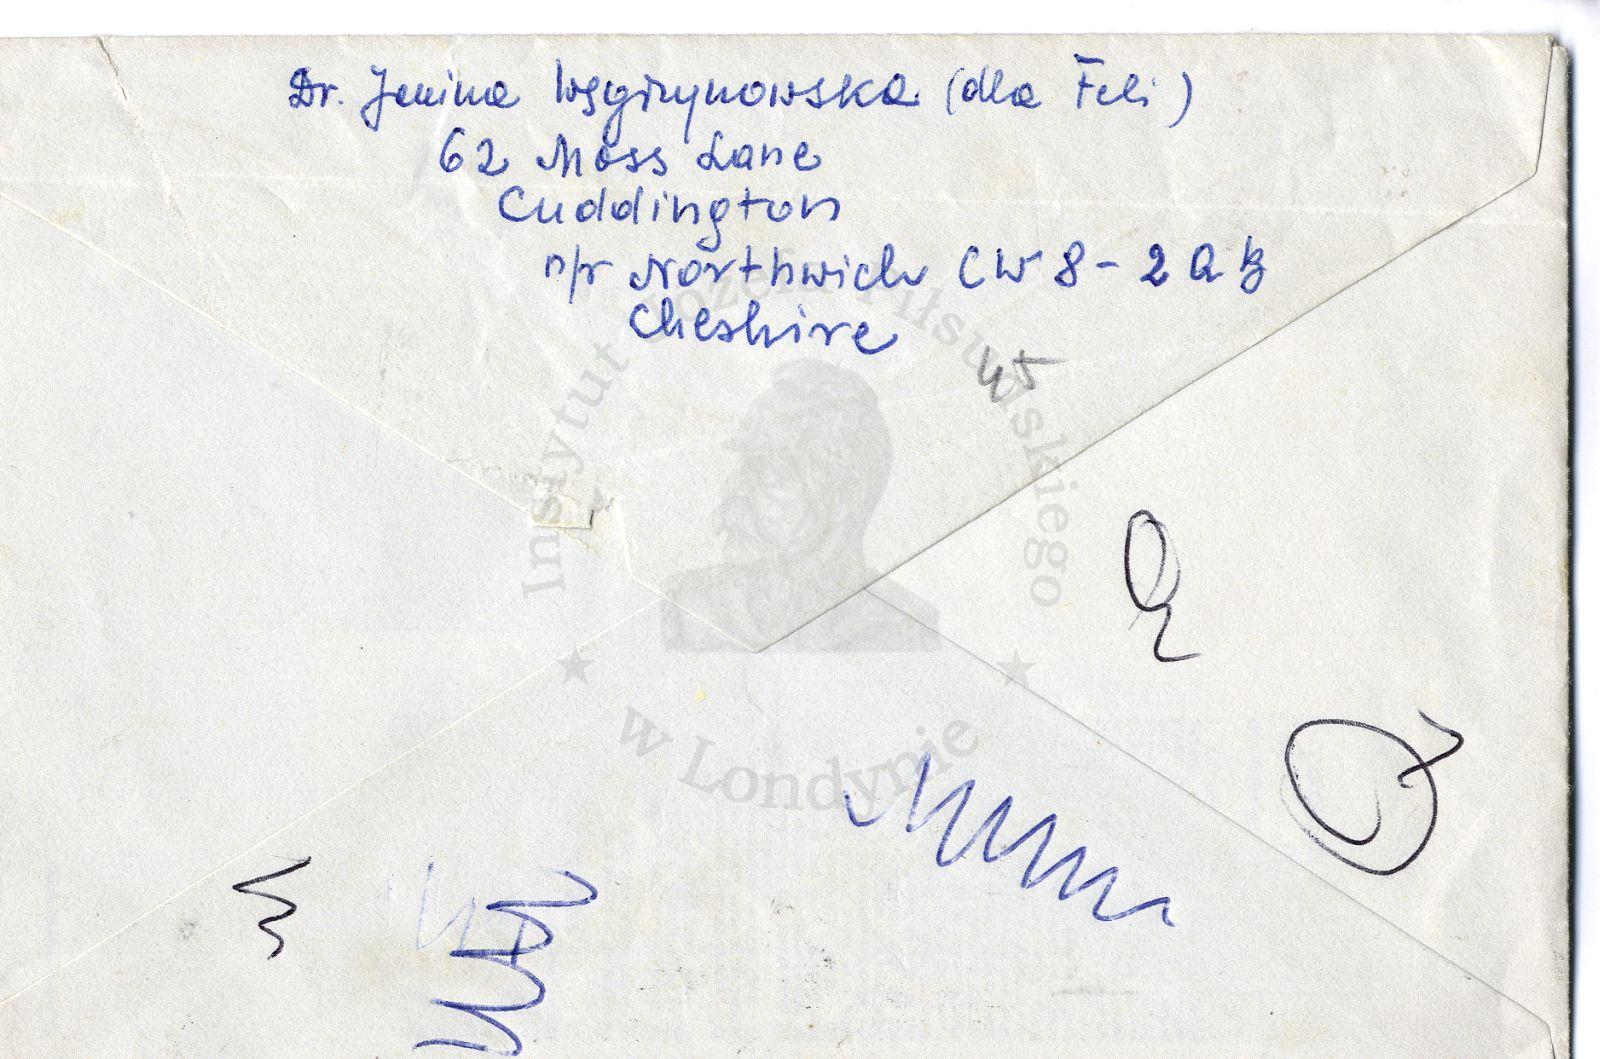 Dr. Janina Węgrzynowska (dla Feli)
62 Moss Lane
Cuddington
n/r Northwich CW 8 - 2 Q B
Cheshire
45
Instytut Józefa Piłsudskiego
w Londynie